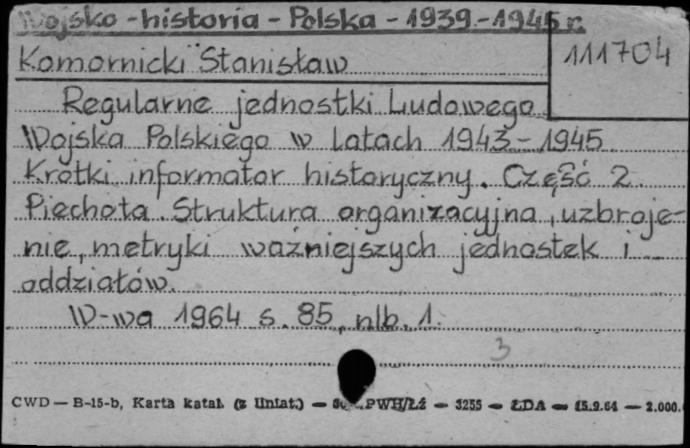 Wojsko - historia - Polska - 1939 - 1945 r.
111704
Komornicki Stanisław
Regularne jednostki Ludowego
Wojska Polskiego w latach 1943 - 1945.
Krótki informator historyczny. Część 2.
Piechota. Struktura organizacyjna, uzbroje-
nie, metryki ważniejszych jednostek i
oddziałów.
W-wa 1964 s. 85, nlb. 1.
3
CWD — B-15-b, Karta katal. (z Uniat.) — PWH/Łź — 3255 — ŁDA — 15.9.64 — 2.000.